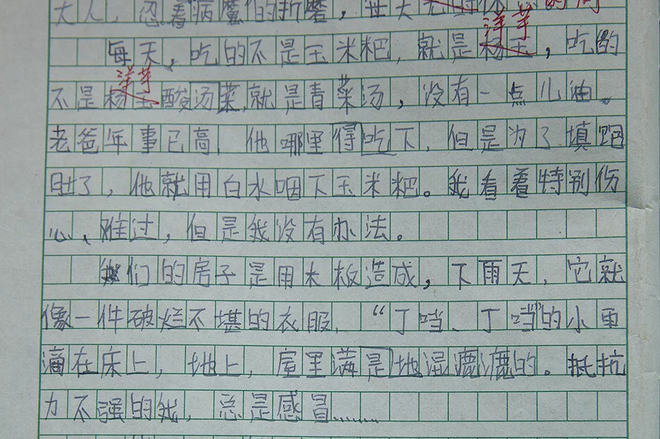 大人，忍着病魔们的折磨，每天
每天，吃的不是玉米粑，就是杨玉洋芋，吃的
不是杨玉洋芋酸汤菜，就是青菜汤，没有一点儿油。
老爸年事已高，他哪里得吃下，但是为了填跑
肚了，他就用白水咽下玉米粑。我看着特别伤
心、难过，但是我没有办法。
我们的房子是用木板造成，下雨天，它就
像一件破烂不堪的衣服，“丁当、丁当”的小雨
滴在床上，地上，屋里满是地湿漉漉的。抵抗
力不强的我，总是感冒……